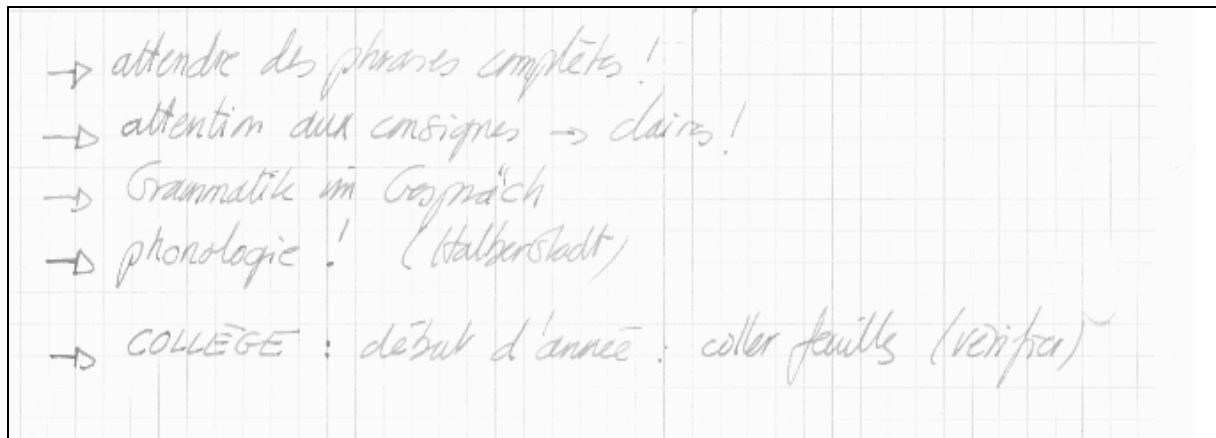 → attendre des phrases complètes !
→ attention aux consignes → claires !
→ Grammatik im Gespräch
→ phonologie ! (Halberstadt)
→ COLLÈGE : début d'année : coller feuilles (vérifier)